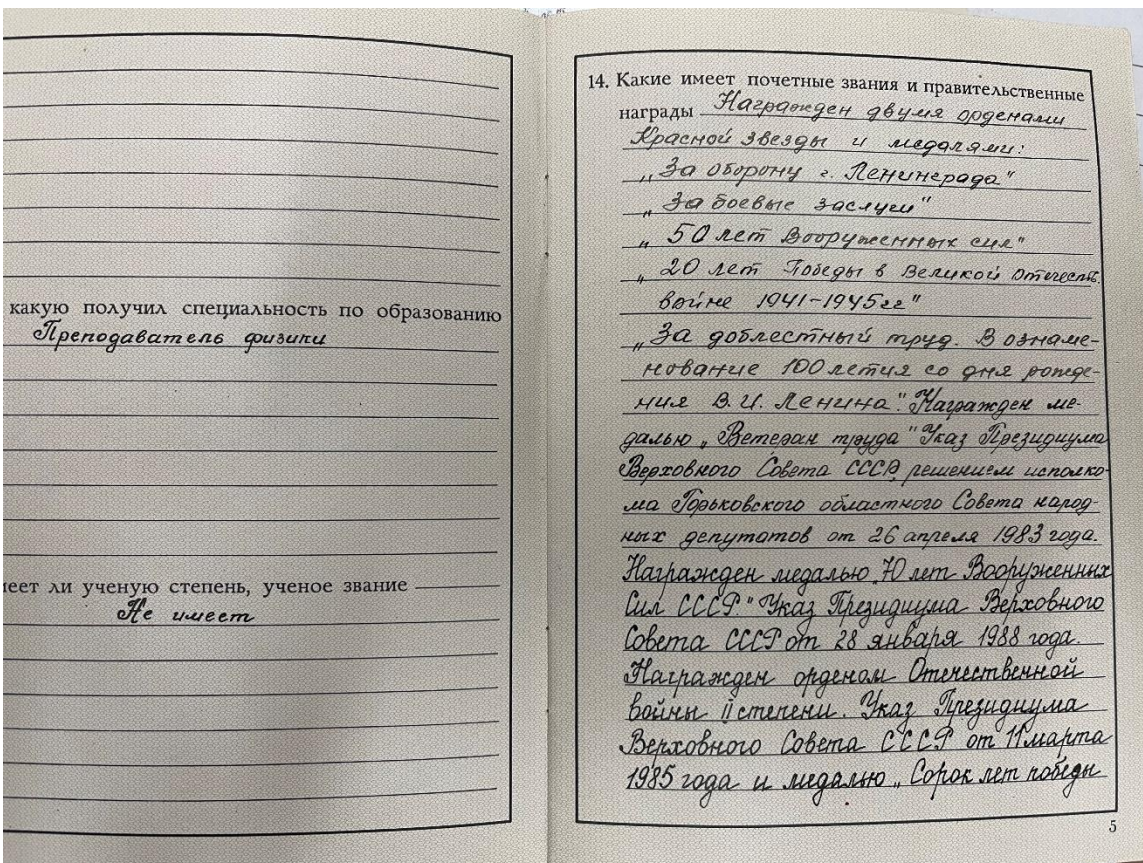 какую получил специальность по образованию
Преподаватель физики
меет ли ученую степень, ученое звание
Не имеет
14. Какие имеет почетные звания и правительственные
награды Награжден двумя орденами
Красной звезды и медалями:
„За оборону г. Ленинграда"
„За боевые заслуги"
„50 лет Вооруженных сил"
„20 лет Победы в Великой отечеств.
войне 1941-1945гг"
„За доблестный труд. В ознаме-
нование 100 летия со дня рожде-
ния В. И. Ленина." Награжден ме-
далью „Ветеран труда" Указ Президиума
Верховного Совета СССР, решением исполко-
ма Горьковского областного Совета народ-
ных депутатов от 26 апреля 1983 года.
Награжден медалью „70 лет Вооруженных
Сил СССР." Указ Президиума Верховного
Совета СССР от 28 января 1988 года.
Награжден орденом Отечественной
войны II степени. Указ Президиума
Верховного Совета СССР от 11 марта
1985 года и медалью „Сорок лет победы
5